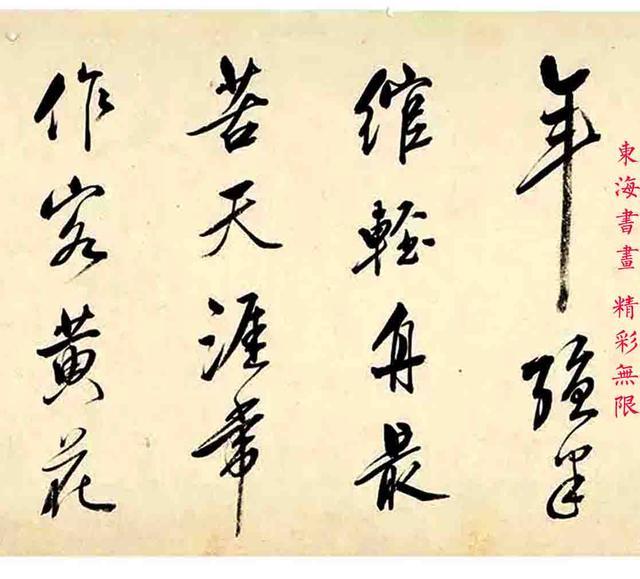 東海書畫 精彩無限
年强半
綰輕舟最
苦天涯常
作客黃花